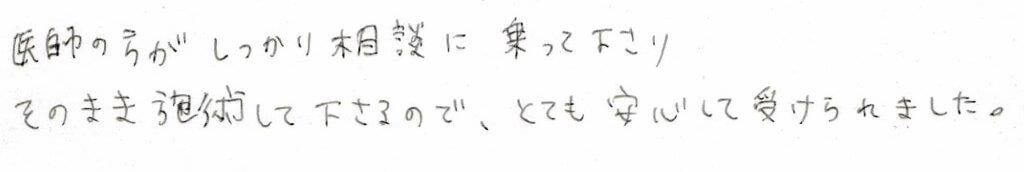 医師の方がしっかり相談に乗って下さり
そのまま施術して下さるので、とても安心して受けられました。